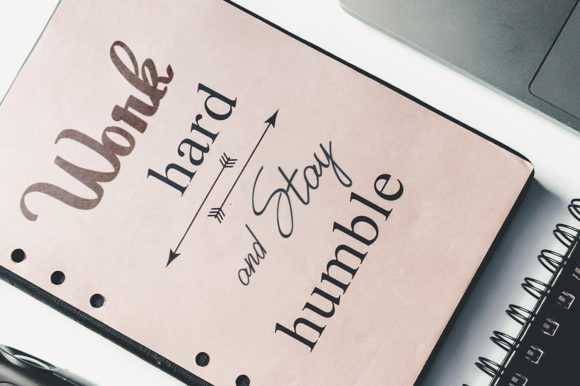 Work
hard
and Stay
humble